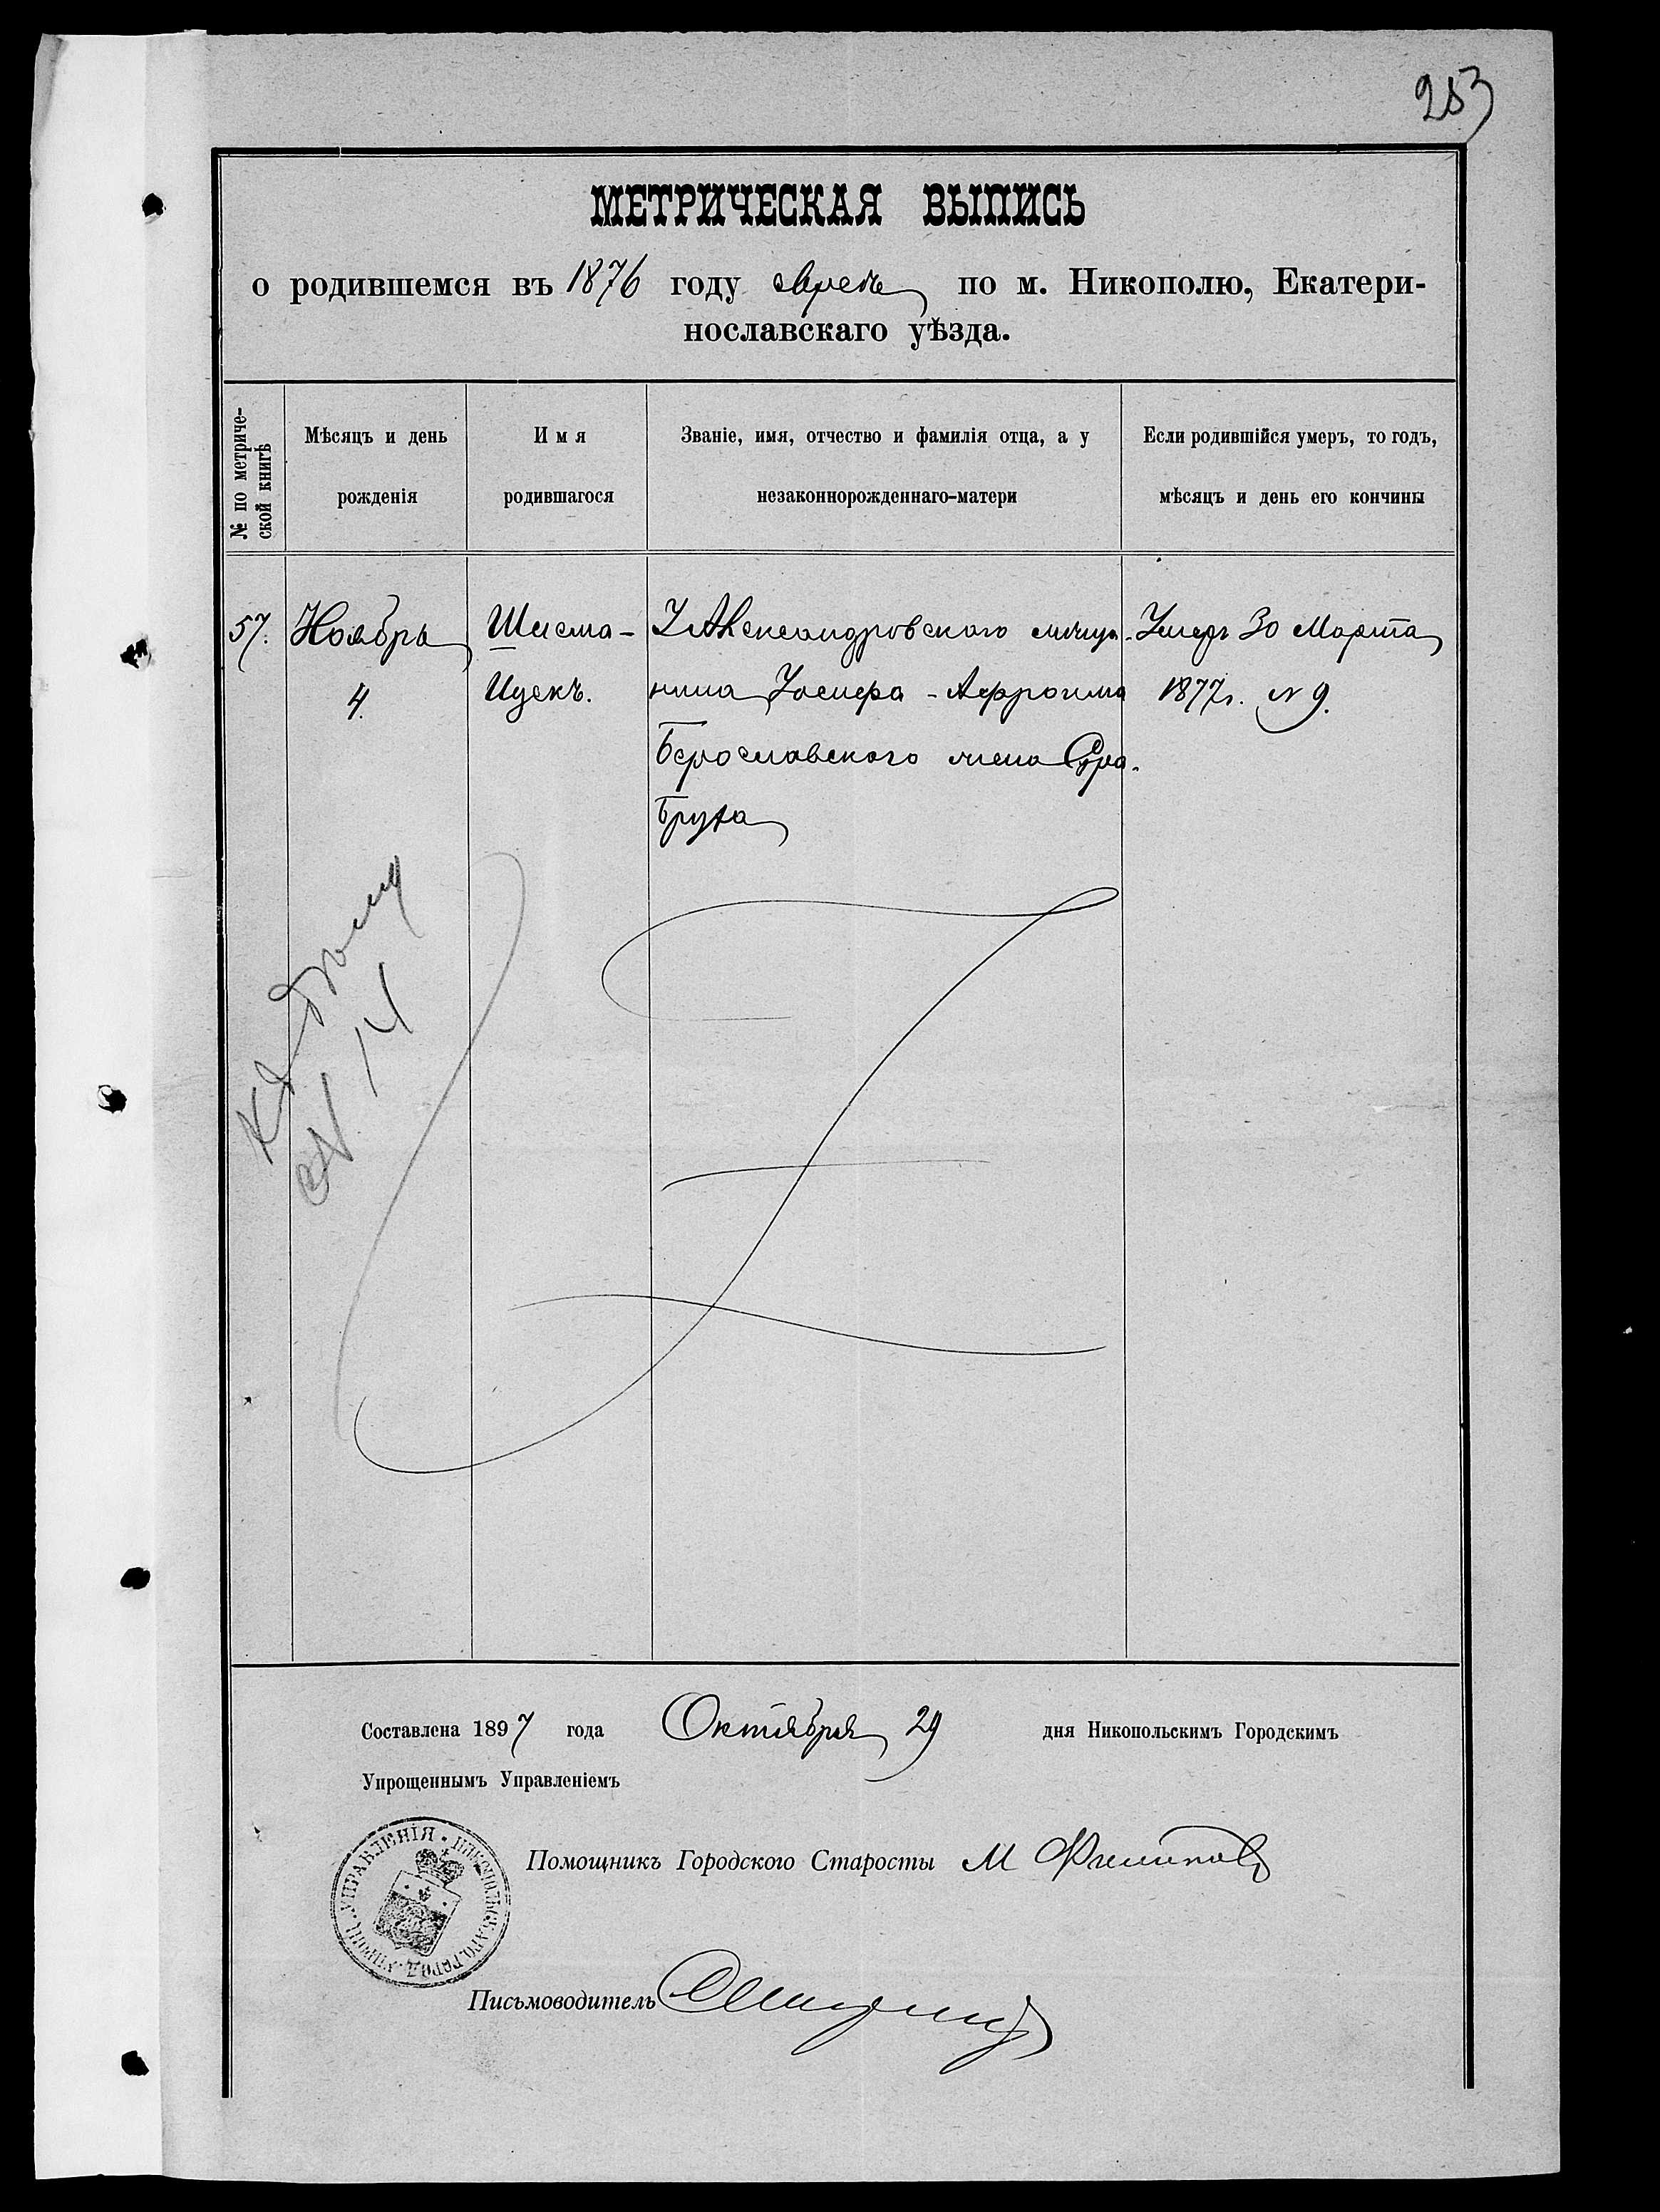 253
МЕТРИЧЕСКАЯ ВЫПИСЬ
о родившемся въ 1876 году евреѣ по м. Никополю, Екатери-
нославскаго уѣзда.
№ по метриче-
ской книгѣ
Мѣсяцъ и день
рожденія
Имя
родившагося
Званіе, имя, отчество и фамилія отца, а у
незаконнорожденнаго-матери
Если родившійся умеръ, то годъ,
мѣсяцъ и день его кончины
57.
Ноябрь
4.
Шлема-
Ицекъ.
У Александровского мѣща-
нина Иосифа-Афроима
Берославского жена Сура-
Бруха
Умеръ 30 Марта
1877 г. N 9.
къ дѣлу
N 14
Составлена 1897 года Октября 29 дня Никопольскимъ Городскимъ
Упрощеннымъ Управленіемъ
НИКОПОЛЬСКАГО ГОРОД. УПРОЩ. УПРАВЛЕНІЯ
Помощникъ Городского Старосты М Филипов
Письмоводитель